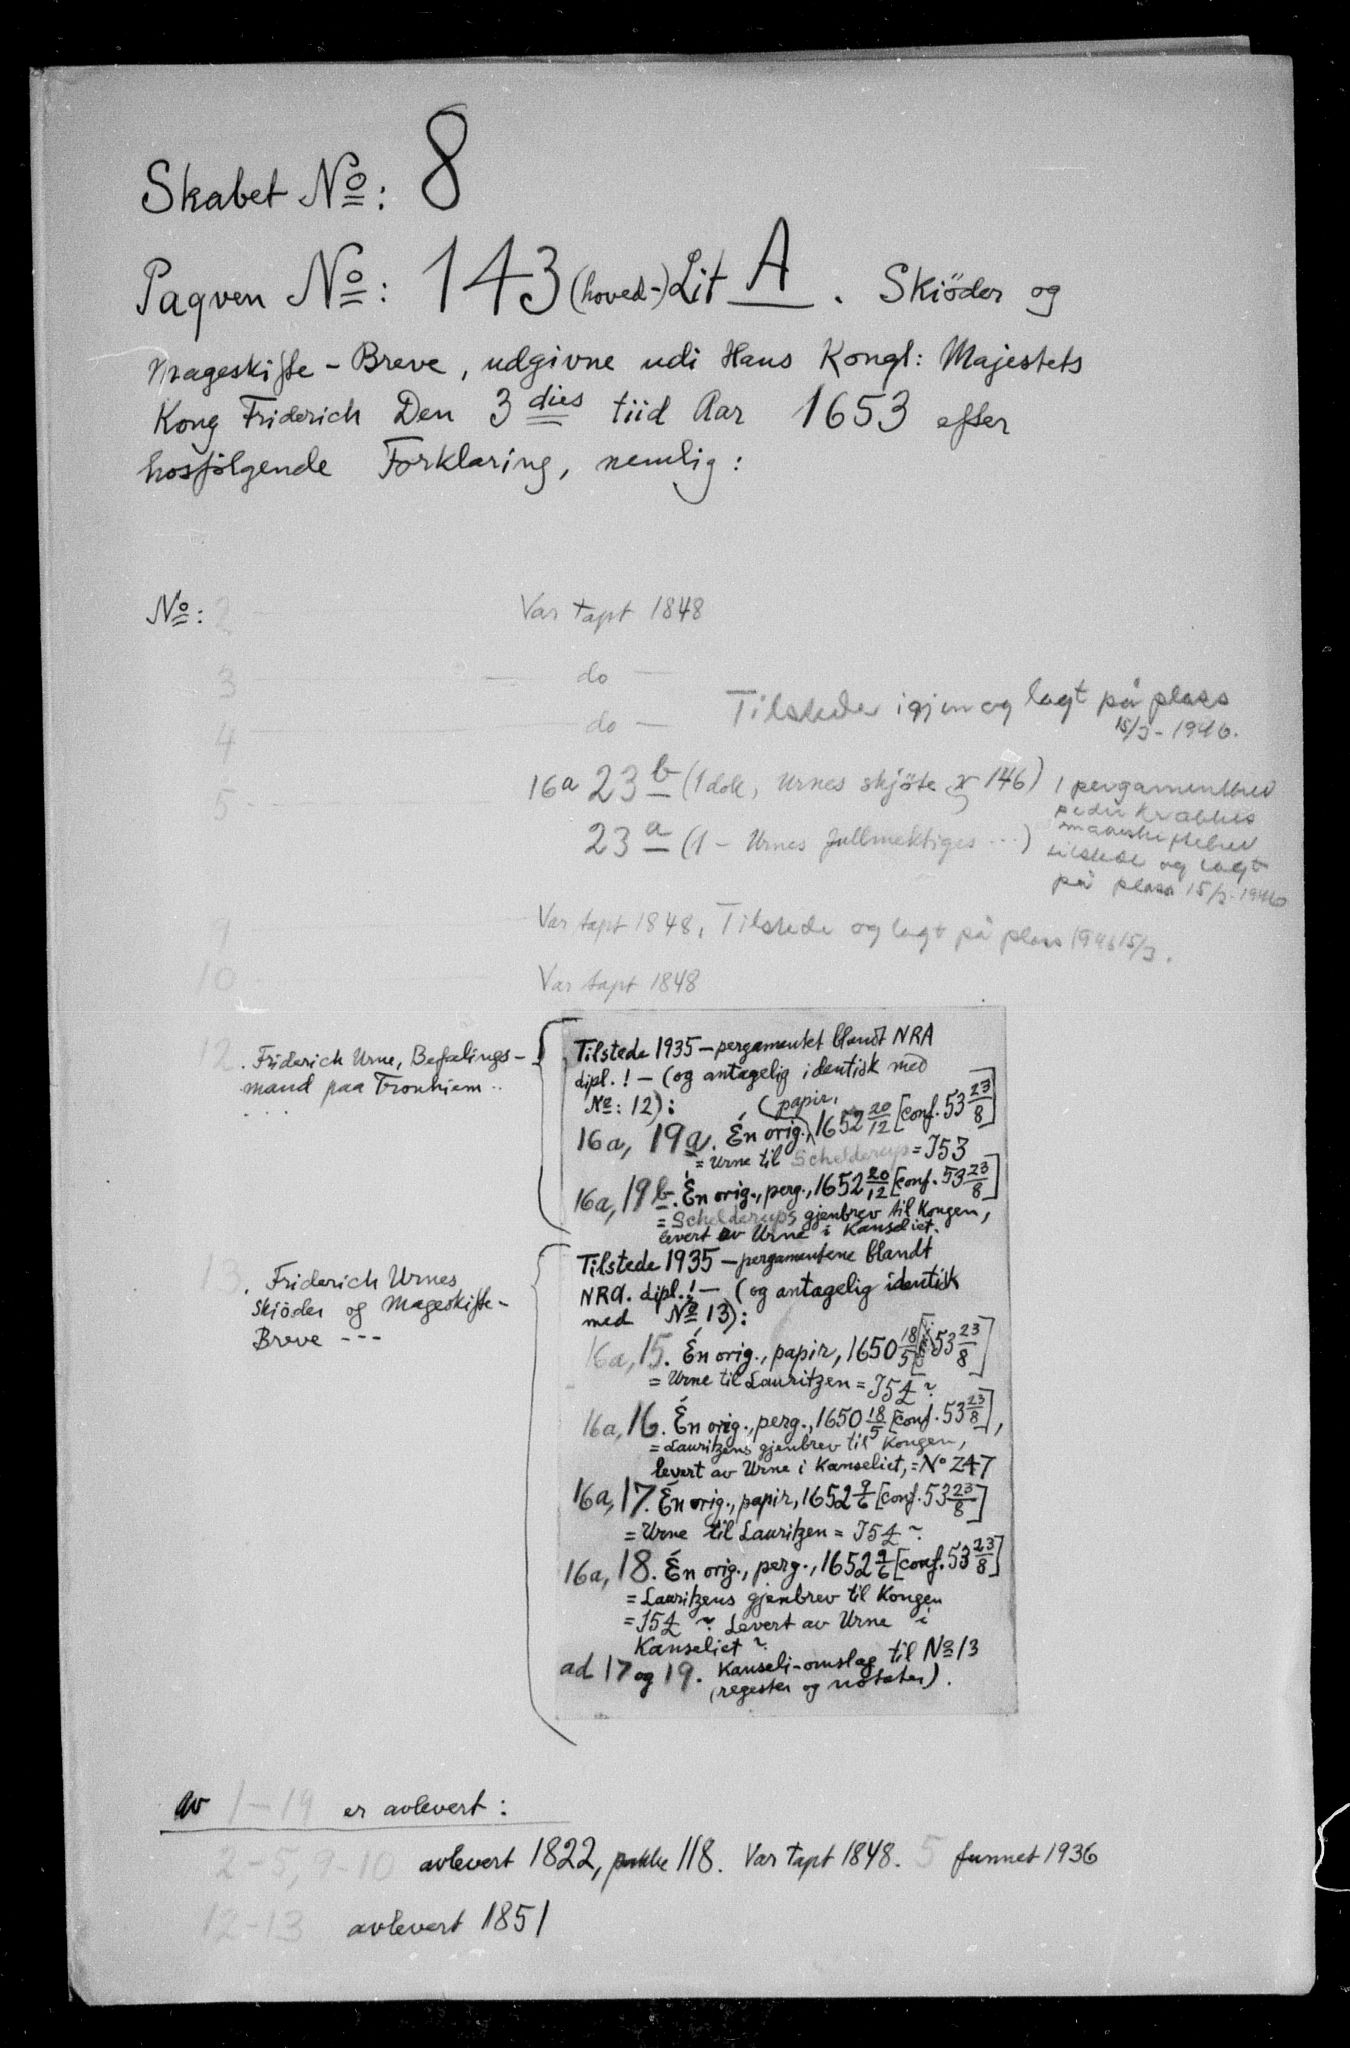 Skabet No: 8
Paqven No: 143 (hoved-) Lit A. Skiöder og
Mageskifte-Breve, udgivne udi Hans Kongl: Majestets
Kong Friderich Den 3 dies tiid Aar 1653 efter
hosfølgende Forklaring, nemlig:
No: 2 Var tapt 1848
3 do
Tilstede igjen og lagt på plass
4 do
15/3-1946.
16a 23 b (1 dok, Urnes skjöte 146)
5
1 pergamentbrev
Peder Krabbes
mageskiftebrev
tilstede og lagt
på plass 15/3-1946
23 a (1 - Urnes fullmektiges ...)
9 Var tapt 1848, Tilstede og lagt på plass 1946 15/3.
10 Var tapt 1848
12. Friderich Urne, Befalings-
mand paa Tronhiem..
Tilstede 1935 - pergamentet blandt NRA
dipl.! - (og antagelig identisk med
No: 12):
16a, 19a. Én orig., (papir, 1652 20/12 [conf. 53 23/8]
= Urne til Schelderup = 153
16a, 19b. Én orig., perg., 1652 20/12 [conf. 53 23/8]
= Schelderups gjenbrev til Kongen,
levert av Urne i Kanseliet.
13. Friderich Urnes
Skiöder og Mageskifte-
Breve ---
Tilstede 1935 - pergamentene blandt
NRA. dipl.! - (og antagelig identisk
med No 13):
16a, 15. Én orig., papir, 1650 18/5 [conf. 53 23/8]
= Urne til Lauritzen = 154 ?
16a, 16. Én orig., perg., 1650 18/5 [conf. 53 23/8],
= Lauritzens gjenbrev til Kongen,
levert av Urne i Kanseliet, = No 247
16a, 17. Én orig., papir, 1652 9/6 [conf. 53 23/8]
= Urne til Lauritzen = 154 ?
16a, 18. Én orig., perg., 1652 9/6 [conf. 53 23/8]
= Lauritzens gjenbrev til Kongen
= 154 ? Levert av Urne i
Kanseliet ?
ad 17 og 19. Kanseli-omslag til No 13
(regester og notater).
Av 1-19 er avlevert:
2-5, 9-10 avlevert 1822, pakke 118. Var tapt 1848. 5 funnet 1936
12-13 avlevert 1851